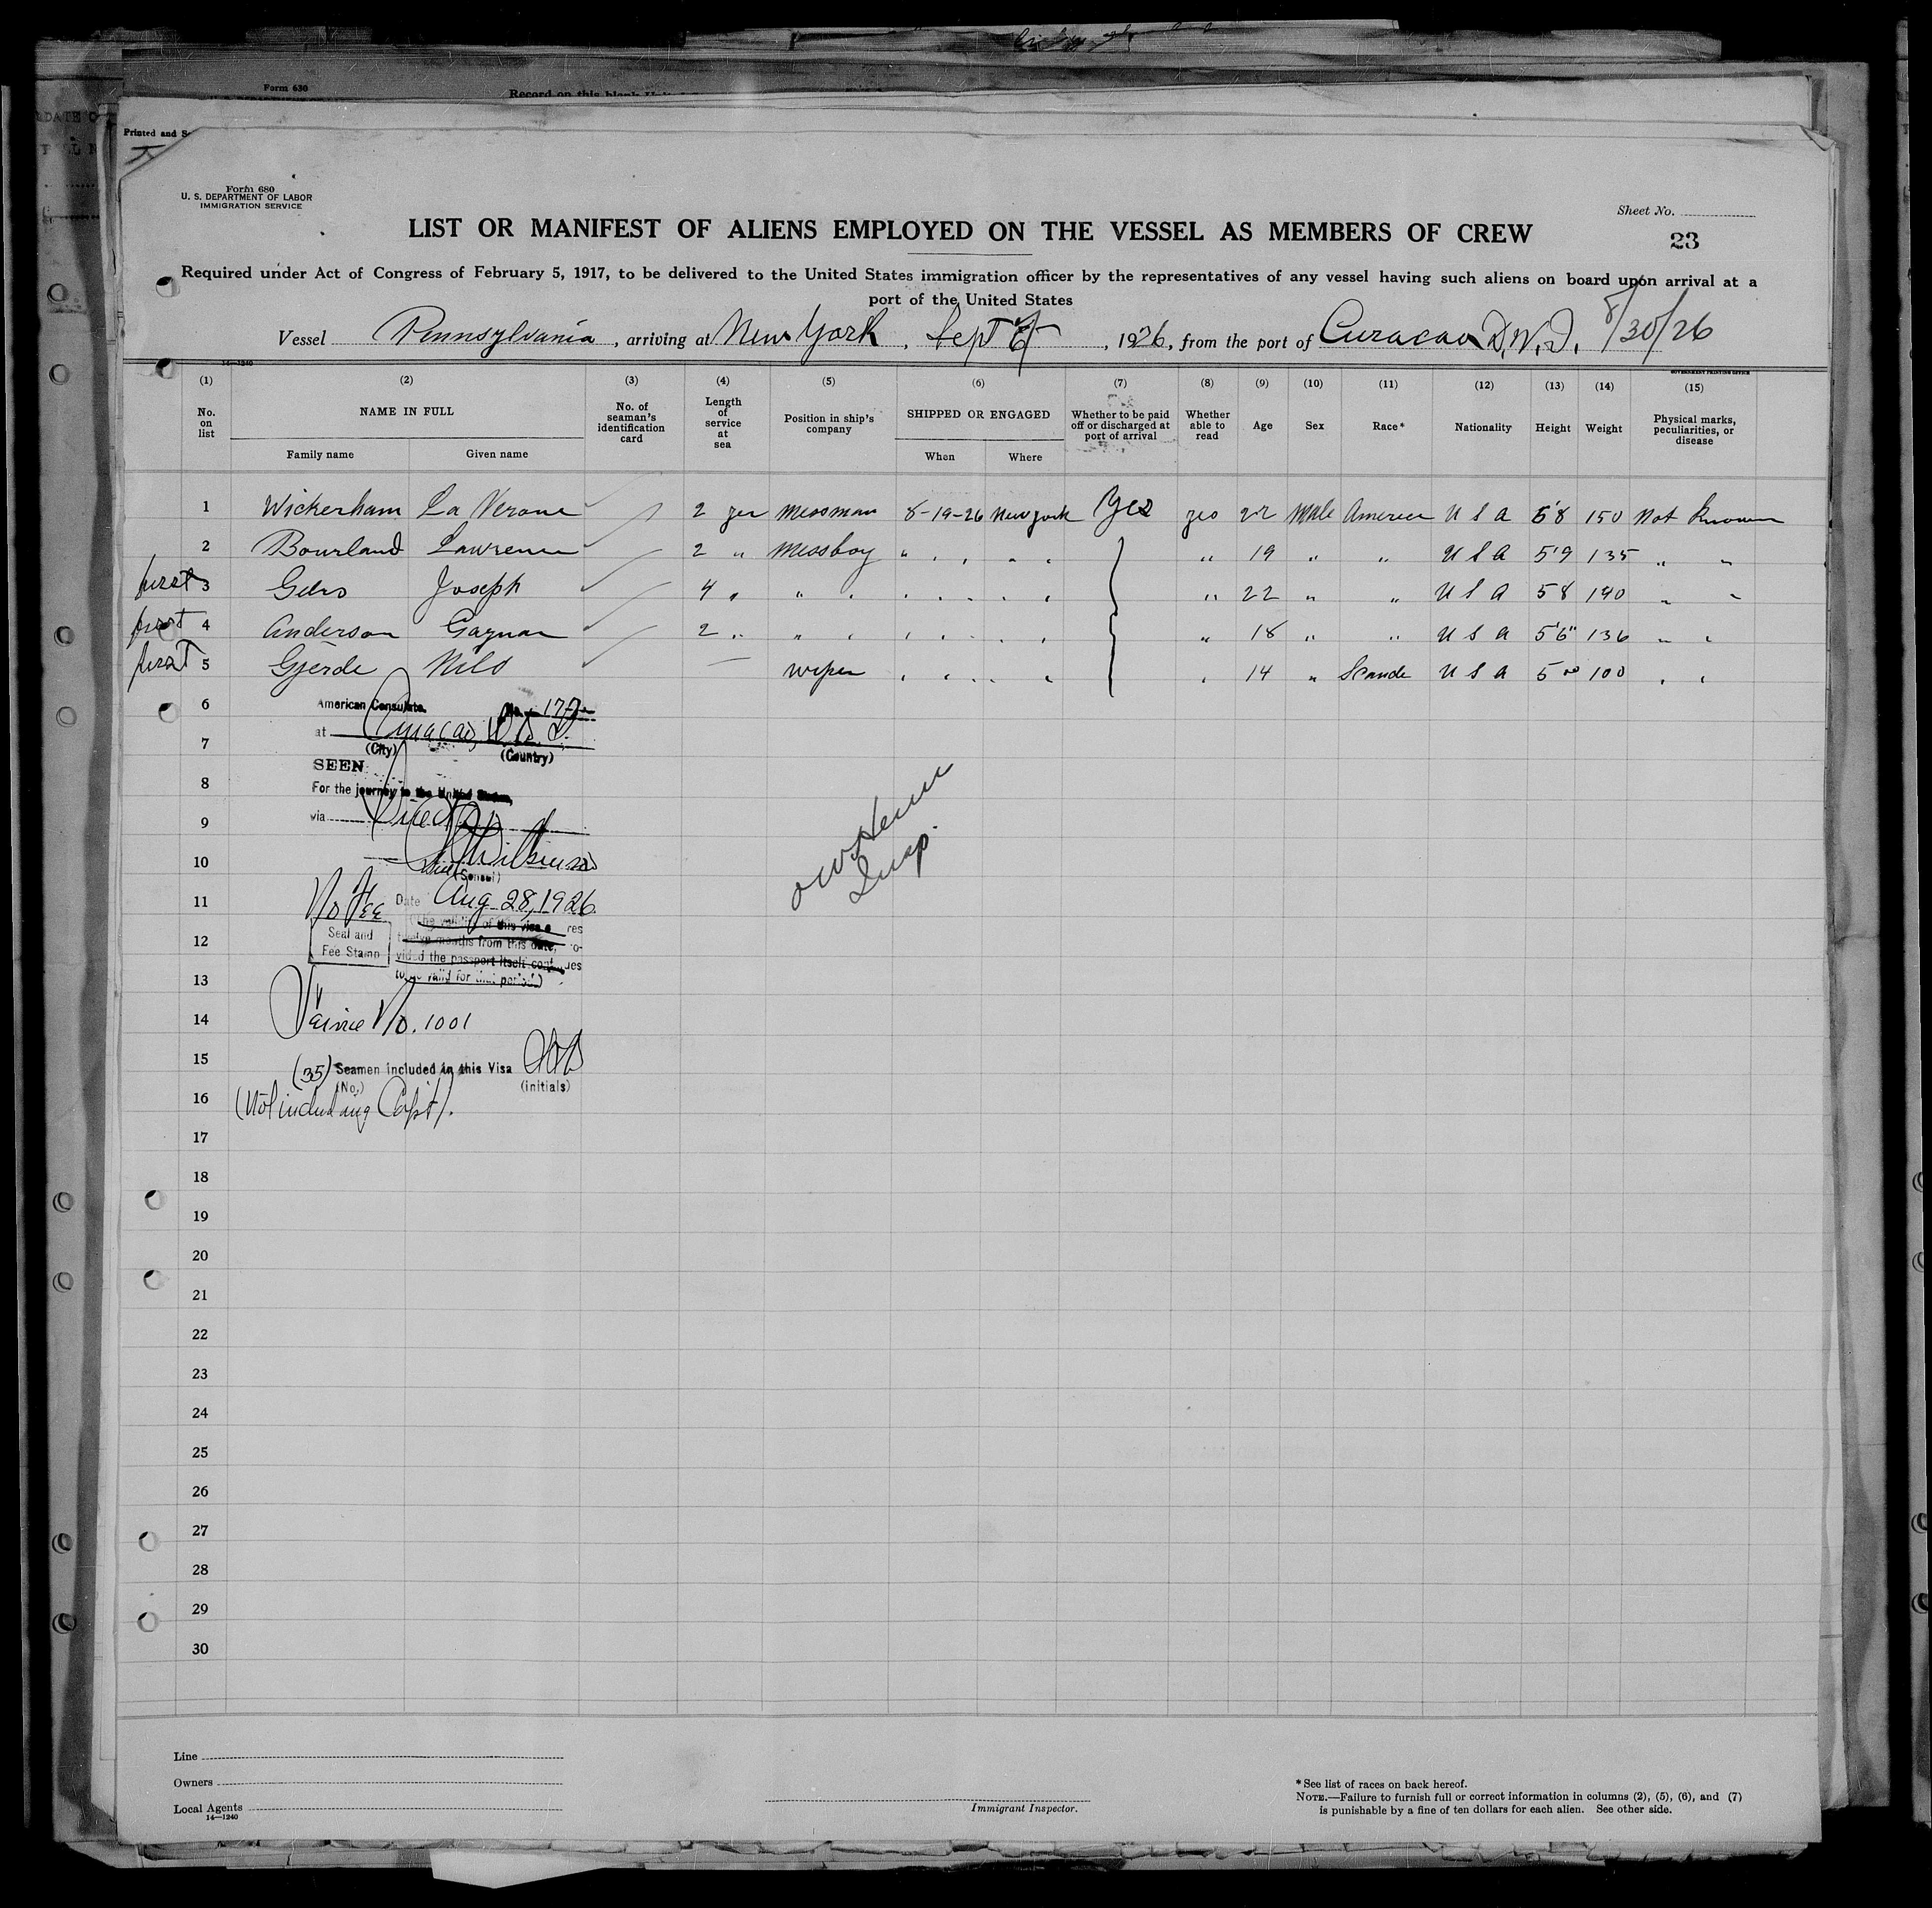 Form 630
Record on this blank
Printed and S
Form 680
U. S. DEPARTMENT OF LABOR
IMMIGRATION SERVICE
Sheet No.
23
LIST OR MANIFEST OF ALIENS EMPLOYED ON THE VESSEL AS MEMBERS OF CREW
Required under Act of Congress of February 5, 1917, to be delivered to the United States immigration officer by the representatives of any vessel having such aliens on board upon arrival at a
port of the United States
Vessel Pennsylvania, arriving at New York, Sept, 1926, from the port of Curacao D.W.I. 8/30/26
14—1240
GOVERNMENT PRINTING OFFICE
(1) (2) (3) (4) (5) (6) (7) (8) (9) (10) (11) (12) (13) (14) (15)
No. on list
NAME IN FULL
Family name Given name
No. of seaman's identification card
Length of service at sea
Position in ship's company
SHIPPED OR ENGAGED
When Where
Whether to be paid off or discharged at port of arrival
Whether able to read
Age Sex Race* Nationality Height Weight
Physical marks, peculiarities, or disease
1 Wickerham La Verone 2 yer messman 8-19-26 New york Yes yes 22 Male American U S A 5'8 150 Not Known
2 Bourland Lawrence 2 " Messboy " " " " " 19 " " U S A 5'9 135 " "
first 3 Joseph 4 " " " " " " " 22 " " U S A 5 8 140 " "
first 4 Anderson 2 " " " " " " " 18 " " U S A 5'6" 136 " "
first 5 Gjerde Nils — wiper " " " " " 14 " Scande U S A 5 00 100 " "
6
American Consulate No.
7
at Curacao, D.W.I.
(City) (Country)
SEEN
8
For the journey to the United States,
9
via Direct
10
Wilkinson
(Consul)
11
No Fee Date Aug 28, 1926.
(The validity of this visa res
12
Seal and Fee Stamp
twelve months from this date, ro-
vided the passport itself continues
13
to be valid for that period.)
14
No. 1001
15
(35) Seamen included in this Visa
(No.) (initials)
16
(Not including Capt).
Insp.
17
18
19
20
21
22
23
24
25
26
27
28
29
30
Line
Owners
Local Agents
14—1240
Immigrant Inspector.
* See list of races on back hereof.
NOTE.—Failure to furnish full or correct information in columns (2), (5), (6), and (7)
is punishable by a fine of ten dollars for each alien. See other side.